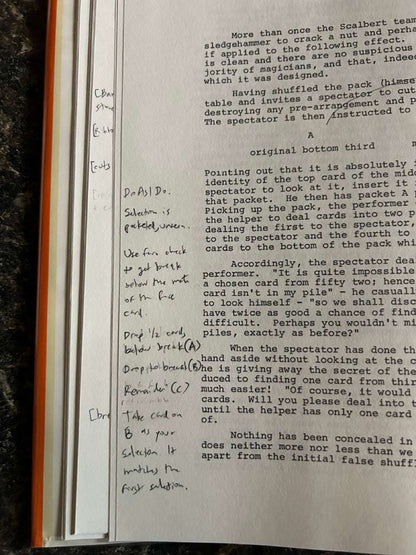 More than once the Scalbert team
sledgehammer to crack a nut and perha
if applied to the following effect.
is clean and there are no suspicious
jority of magicians, and that, indeed
which it was designed.
Having shuffled the pack (himse
table and invites a spectater to cut
destroying any pre-arrangement and p
The spectator is then instructed to
A
original bottom third
Pointing out that it is absolutely i
identity of the top card of the midd
spectator to look at it, insert it i
that packet. He then has packet A p
Picking up the pack, the performer
the helper to deal cards into two p
dealing the first to the spectator,
to the spectator and the fourth to
cards to the bottom of the pack whi
Accordingly, the spectator deal
performer. "It is quite impossible
a chosen card from fifty two; hence
card isn't in my pile" - he casuall
to look himself - "so we shall disc
have twice as good a chance of find
difficult. Perhaps you wouldn't mi
piles, exactly as before?"
When the spectator has done th
hand aside without looking at the c
he is giving away the secret of the
duced to finding one card from thir
much easier! "Of course", it would
cards. Will you please deal into t
until the helper has only one card
of.
Nothing has been concealed in
does neither more nor less than we
apart from the initial false shuff
Do As I Do.
Selection is
pocketed, unseen.
Use fan check
to get break
below the mate
of the face
card.
Drop 1/2 cards
below break (A)
Drop to break (B)
Remainder (C)
Take card on
B as your
selection. It
matches the
first selection.
[cuts
[bre